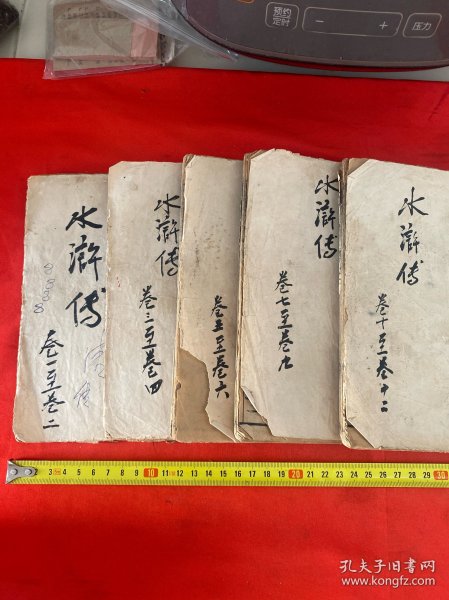 预约
定时
−
+
压力
水浒传
卷一至卷二
8888
水浒传
卷三至卷四
卷五至卷六
水浒传
卷七至卷九
水浒传
卷十至卷十二
1 2 3 4 5 6 7 8 9 10 11 12 13 14 15 16 17 18 19 20 21 22 23 24 25 26 27 28 29 30
孔夫子旧书网
www.kongfz.com